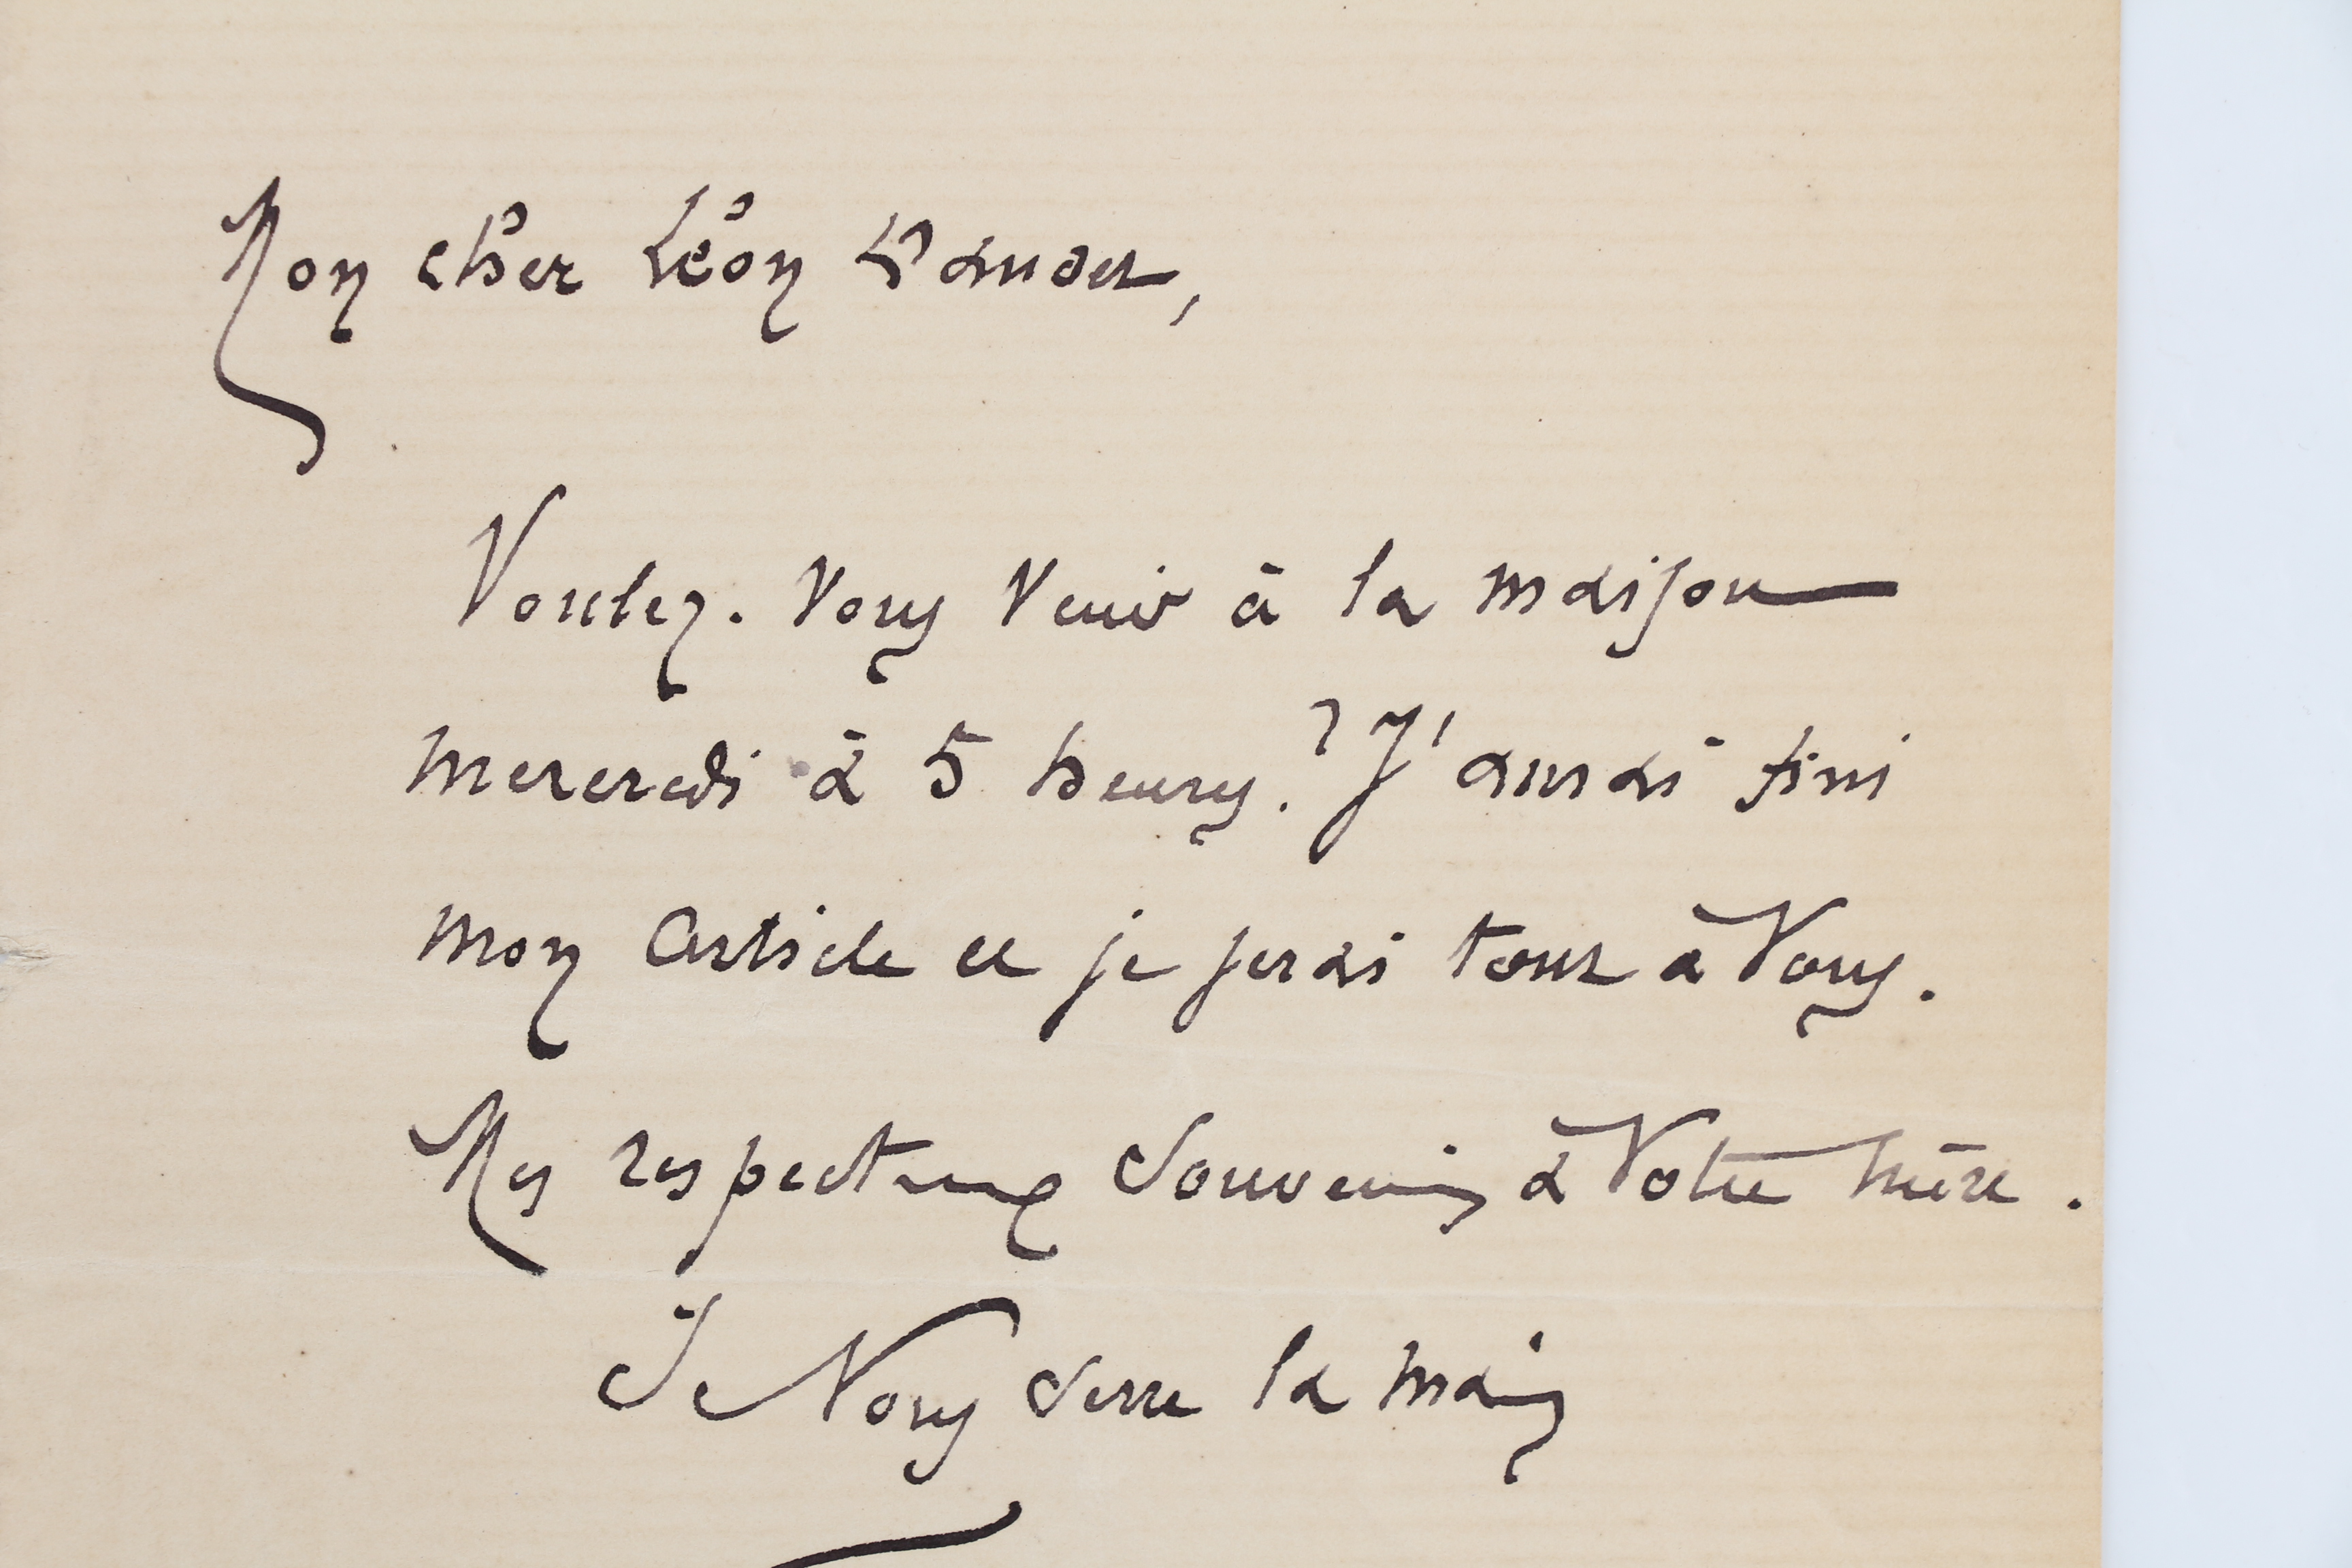 Mon cher Léon Daudet,
Voulez-vous venir à la maison
mercredi à 5 heures ? J'aurai fini
mon article et je serai tout à vous.
Mes respectueux souvenirs à votre mère.
Je vous serre la main